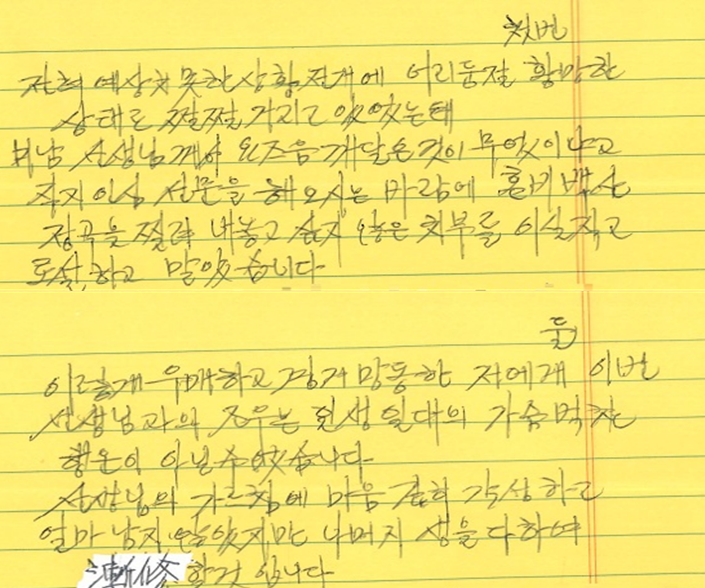 첫번
전혀 예상치 못한 상황전개에 어리둥절 황망한
상태로 쩔쩔 거리고 있었는데
남 선생님께서 요즈음 깨달은 것이 무엇이냐고
직지인심 선문을 해오시는 바람에 혼비백산
정곡을 찔려 내놓고 싶지 않은 치부를 이실직고
토설하고 말았습니다
둘
이렇게 우매하고 경거망동한 저에게 이번
선생님과의 조우는 일생일대의 가슴벅찬
행운이 아닐수 없습니다
선생님의 가르침에 마음 깊히 각성하고
얼마 남지 않았지만 나머지 생을 다하여
漸修 할것 입니다